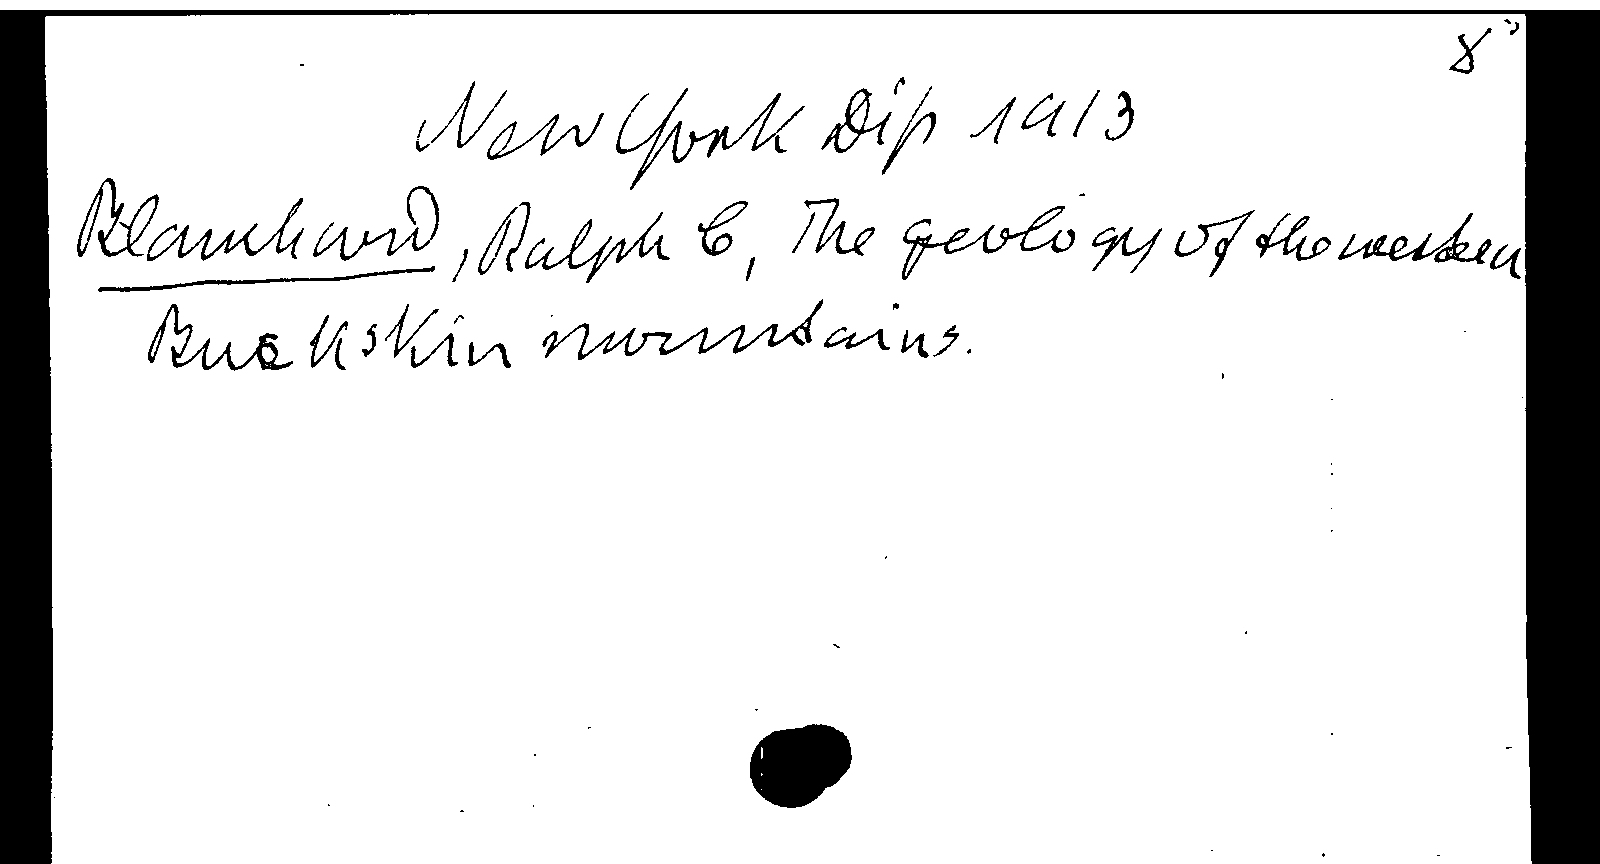 8°
New York Dis 1913
Blanchard, Ralph C, The geology of the western
Buckskin mountains.